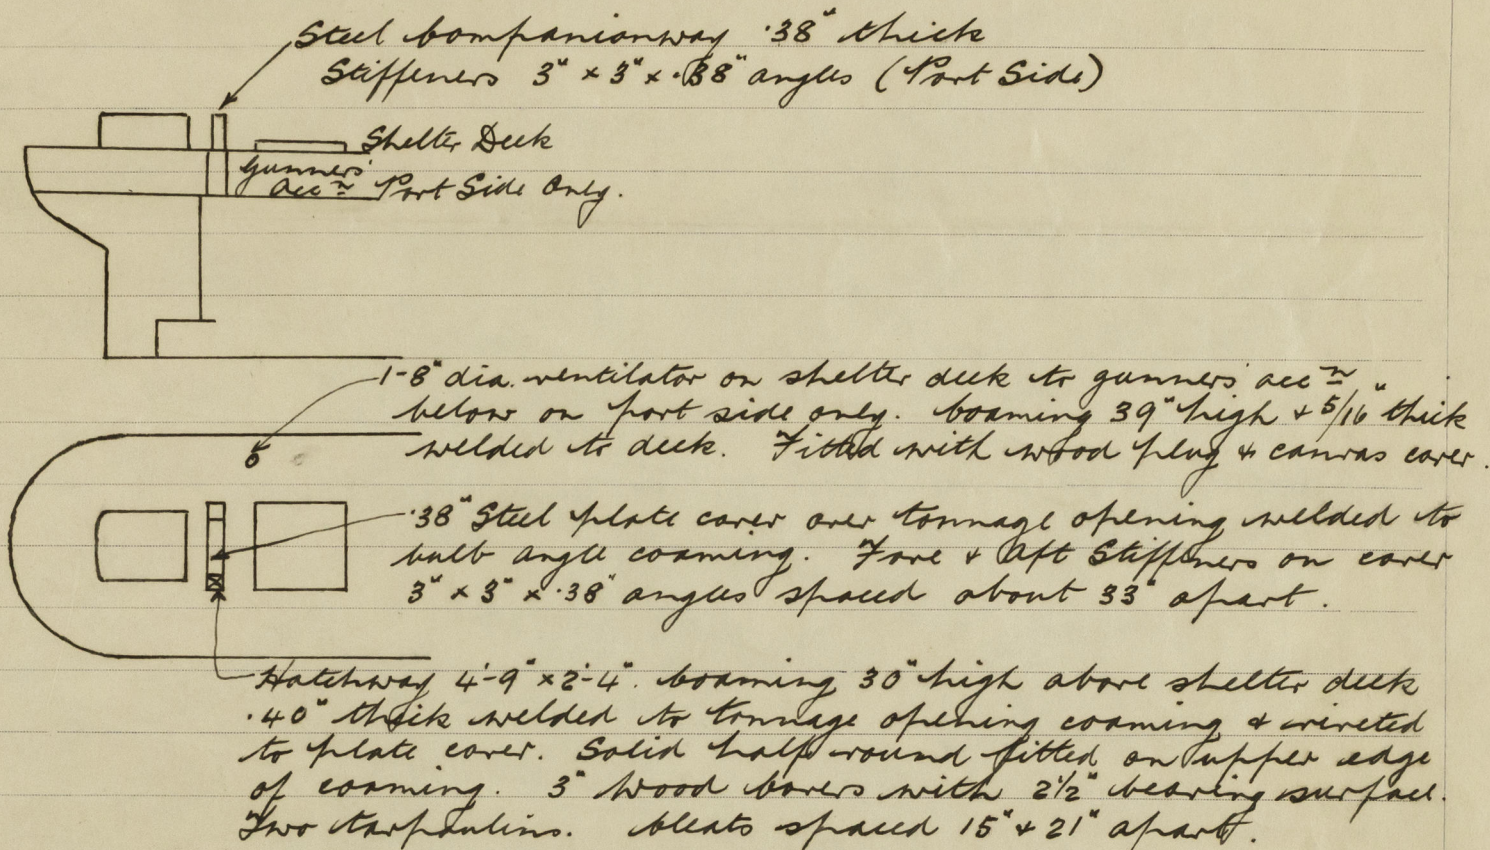 Steel Companionway .38" thick
Stiffeners 3" x 3" x .38" angles (Port Side)
Shelter Deck
Gunners'
accn Port Side Only.
1-8" dia. ventilator on shelter deck to gunners' accn
below on port side only. Coaming 39" high & 5/16" thick
welded to deck. Fitted with wood plug & canvas cover.
.38" Steel plate cover over tonnage opening welded to
bulb angle coaming. Fore & Aft Stiffeners on cover
3" x 3" x .38" angles spaced about 33" apart.
Hatchway 4'-9" x 2'-4". Coaming 30" high above shelter deck
.40" thick welded to tonnage opening coaming & riveted
to plate cover. Solid half round fitted on upper edge
of coaming. 3" Wood Covers with 2 1/2" bearing surface.
Two tarpaulins. Cleats spaced 15" & 21" apart.